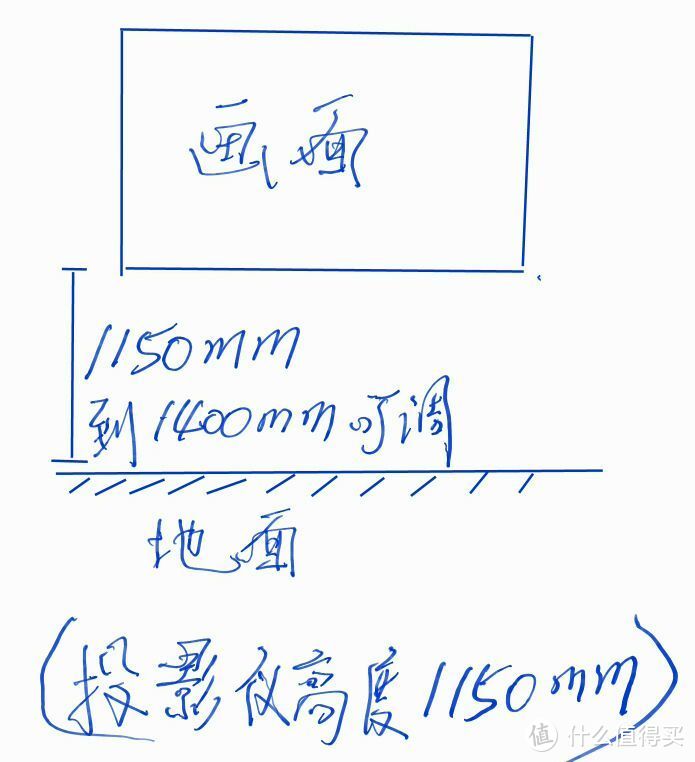 画面
1150mm
到1400mm可调
地面
(投影仪高度1150mm)
值 什么值得买